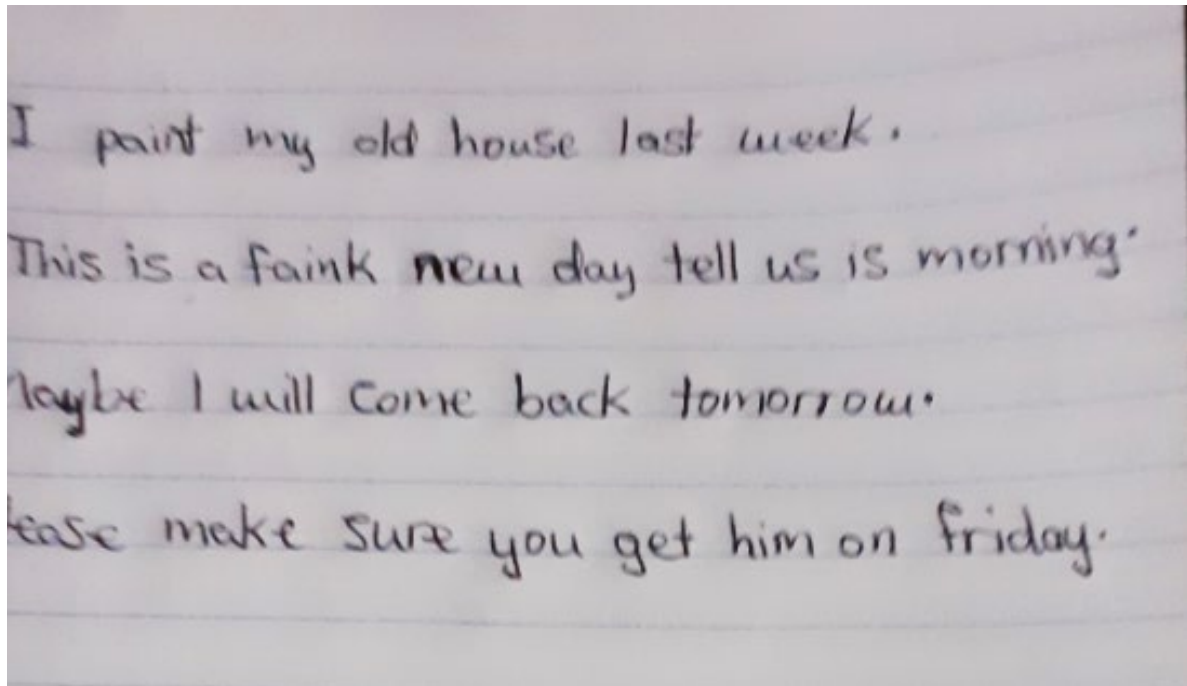 I paint my old house last week.
This is a faink new day tell us is morning.
Maybe I will come back tomorrow.
ease make sure you get him on friday.